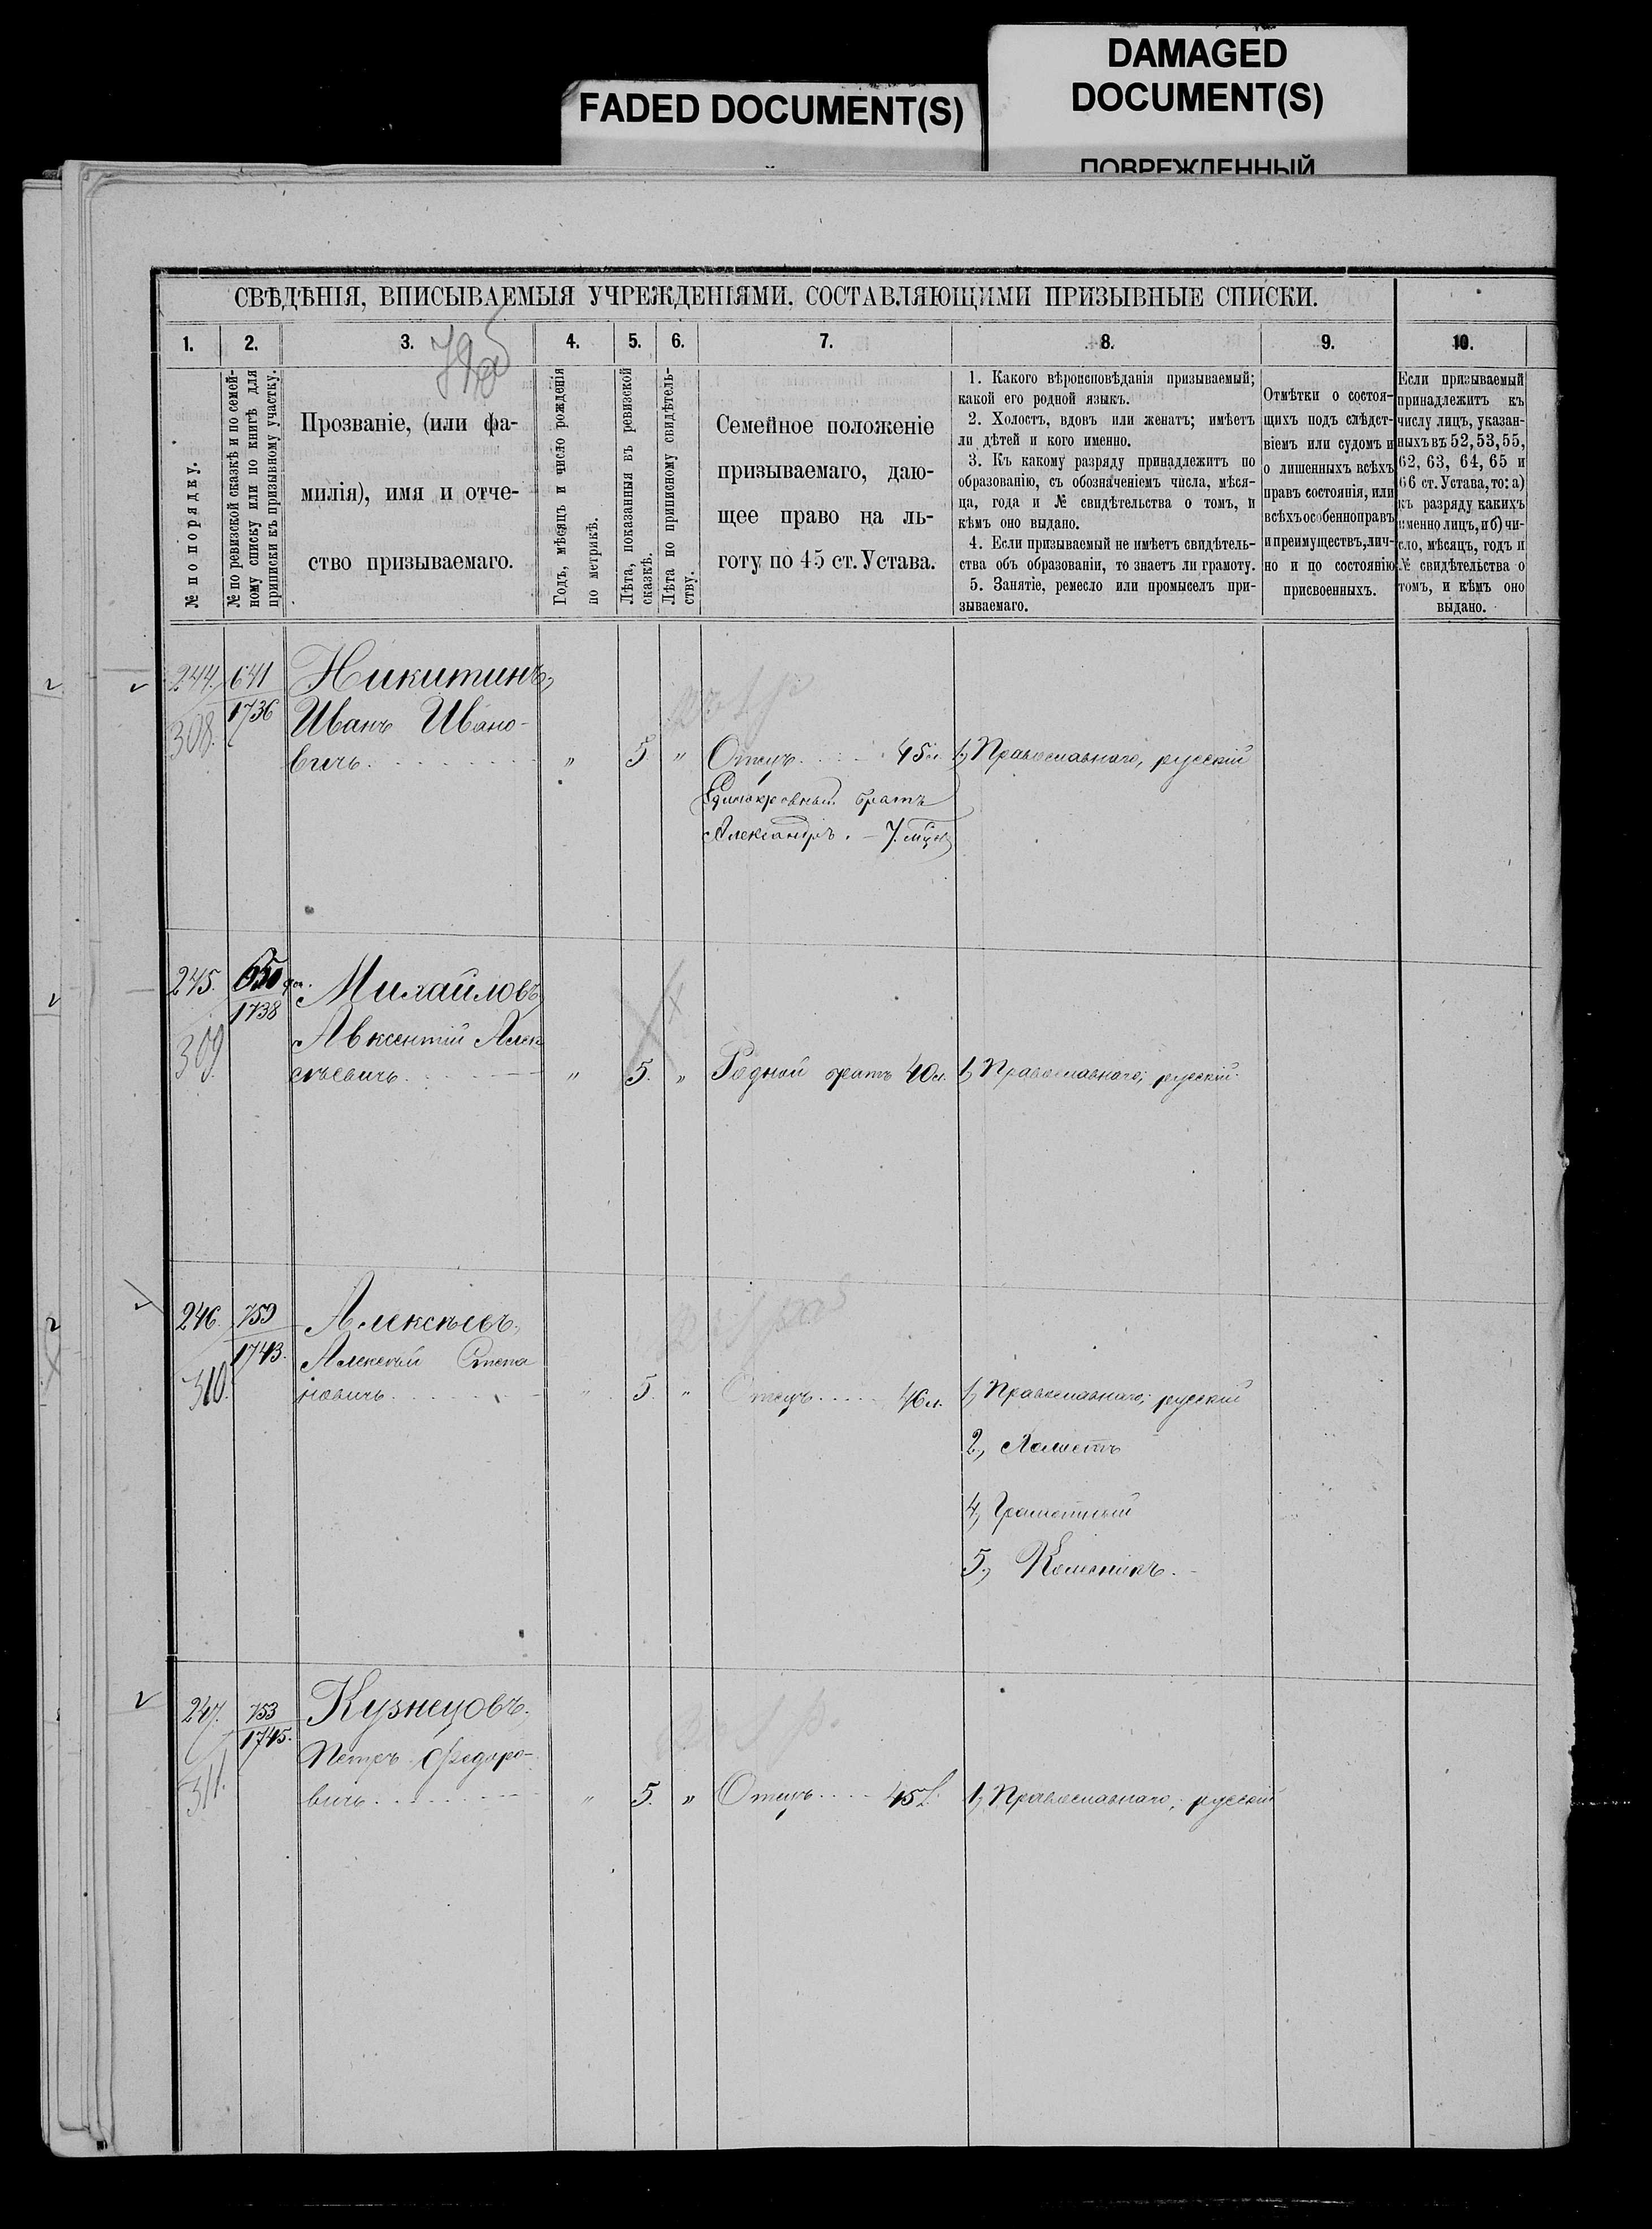 DAMAGED
DOCUMENT(S)
FADED DOCUMENT(S)
ПОВРЕЖДЕННЫЙ
СВѢДѢНІЯ, ВПИСЫВАЕМЫЯ УЧРЕЖДЕНІЯМИ, СОСТАВЛЯЮЩИМИ ПРИЗЫВНЫЕ СПИСКИ.
1. 2. 3. 4. 5. 6. 7. 8. 9. 10.
№ по порядку.
№ по ревизской сказкѣ и по семей-
ному списку или по книгѣ для
приписки къ призывному участку.
Прозваніе, (или фа-
милія), имя и отче-
ство призываемаго.
Годъ, мѣсяцъ и число рожденія
по метрикѣ.
Лѣта, показанныя въ ревизской
сказкѣ.
Лѣта по приписному свидѣтель-
ству.
Семейное положеніе
призываемаго, даю-
щее право на ль-
готу по 45 ст. Устава.
1. Какого вѣроисповѣданія призываемый;
какой его родной языкъ.
2. Холостъ, вдовъ или женатъ; имѣетъ
ли дѣтей и кого именно.
3. Къ какому разряду принадлежитъ по
образованію, съ обозначеніемъ числа, мѣся-
ца, года и № свидѣтельства о томъ, и
кѣмъ оно выдано.
4. Если призываемый не имѣетъ свидѣтель-
ства объ образованіи, то знаетъ ли грамоту.
5. Занятіе, ремесло или промыселъ при-
зываемаго.
Отмѣтки о состоя-
щихъ подъ слѣдст-
віемъ или судомъ и
о лишенныхъ всѣхъ
правъ состоянія, или
всѣхъ особенно правъ
и преимуществъ, лич-
но и по состоянію
присвоенныхъ.
Если призываемый
принадлежитъ къ
числу лицъ, указан-
ныхъ въ 52, 53, 55,
62, 63, 64, 65 и
66 ст. Устава, то: а)
къ разряду какихъ
именно лицъ, и б) чи-
сло, мѣсяцъ, годъ и
№ свидѣтельства о
томъ, и кѣмъ оно
выдано.
244. 641 Никитинъ,
308. 1736 Иванъ Ивано-
вичъ " 5 " Отецъ 45 л. 1, Православнаго, русскій
Единокровный братъ
Александръ. - 7. мѣс
245. 650 Михайловъ
1738
309 Авксентій Алек
сѣевичъ " 5. " Родной братъ 40 л. 1, Православнаго; русскій.
246. 759 Алексѣевъ,
1743. Алексѣй Степа
310. новичъ " 5 " Отецъ 46 л. 1, Православнаго; русскій
2, Холостъ
4, Грамотный
5,
247. 753 Кузнецовъ,
1745. Петръ Ѳедоро-
311. вичъ " 5. " Отецъ 45 л. 1, Православнаго; русскій